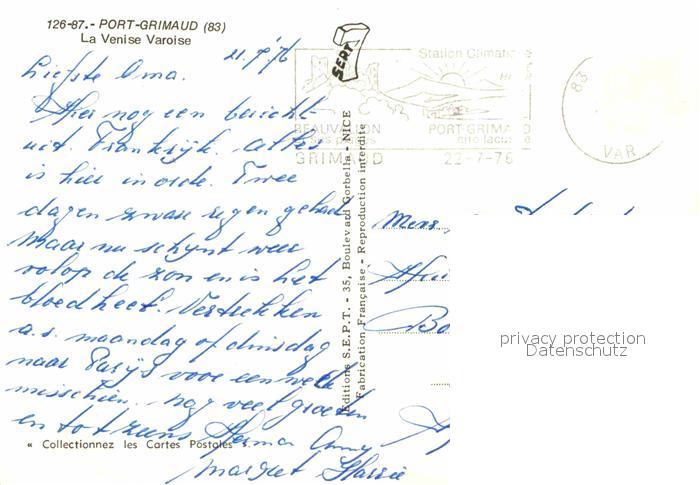 126-87.- PORT-GRIMAUD (83)
La Venise Varoise
21.7'76
Liefste Oma.
Hier nog een bericht
uit Frankrijk. Alles
is hier in orde. Twee
dagen zware regen gehad
maar nu schijnt weer
volop de zon en is het
bloedheet. Vertrekken
a.s. maandag of dinsdag
naar Parijs voor een week
misschien. nog veel groeten
en tot ziens Herman Anny
Margriet Harrie
« Collectionnez les Cartes Postales
SEPT
Editions S.E.P.T. - 35, Boulevard Gorbella - NICE
Fabrication Française - Reproduction interdite
Station Climatique
BEAUVALLON
PORT-GRIMAUD
cité lacustre
GRIMAUD 22-7-76
83
VAR
Mevr.
privacy protection
Datenschutz